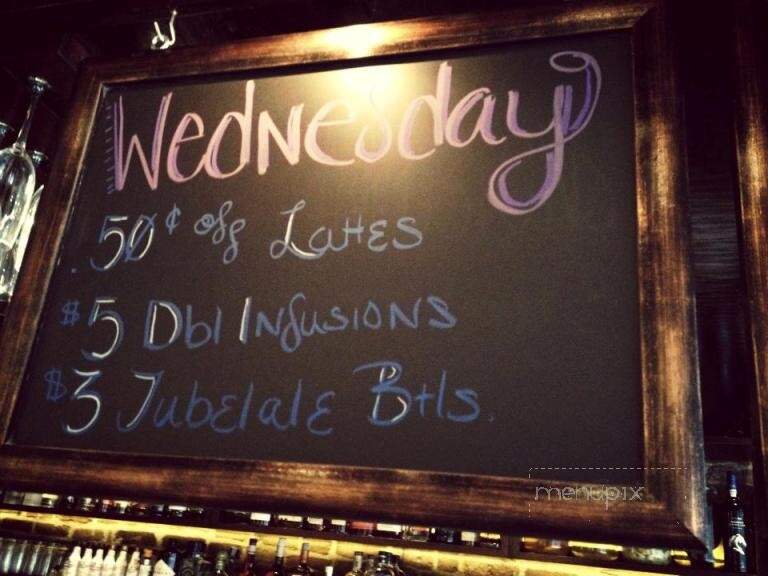 Wednesday
.50¢ off Lattes
$5 Dbl Infusions
$3 Jubelale Btls.
menupix